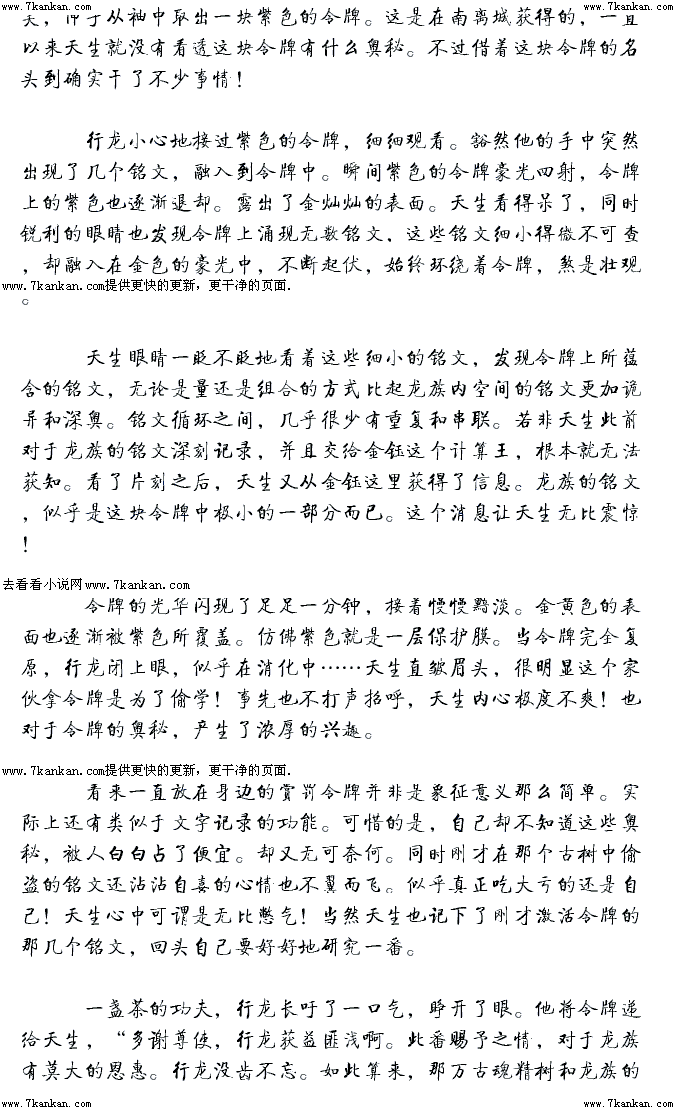 www.7kankan.com www.7kankan.com www.7kankan.com
天，伸手从袖中取出一块紫色的令牌。这是在南离城获得的，一直
以来天生就没有看透这块令牌有什么奥秘。不过借着这块令牌的名
头到确实干了不少事情！
行龙小心地接过紫色的令牌，细细观看。豁然他的手中突然
出现了几个铭文，融入到令牌中。瞬间紫色的令牌豪光四射，令牌
上的紫色也逐渐退却。露出了金灿灿的表面。天生看得呆了，同时
锐利的眼睛也发现令牌上涌现无数铭文，这些铭文细小得微不可查
，却融入在金色的豪光中，不断起伏，始终环绕着令牌，煞是壮观
www.7kankan.com提供更快的更新，更干净的页面.
。
天生眼睛一眨不眨地看着这些细小的铭文，发现令牌上所蕴
含的铭文，无论是量还是组合的方式比起龙族内空间的铭文更加诡
异和深奥。铭文循环之间，几乎很少有重复和串联。若非天生此前
对于龙族的铭文深刻记录，并且交给金钰这个计算王，根本就无法
获知。看了片刻之后，天生又从金钰这里获得了信息。龙族的铭文
，似乎是这块令牌中极小的一部分而已。这个消息让天生无比震惊
！
去看看小说网www.7kankan.com
令牌的光华闪现了足足一分钟，接着慢慢黯淡。金黄色的表
面也逐渐被紫色所覆盖。仿佛紫色就是一层保护膜。当令牌完全复
原，行龙闭上眼，似乎在消化中……天生直皱眉头，很明显这个家
伙拿令牌是为了偷学！事先也不打声招呼，天生内心极度不爽！也
对于令牌的奥秘，产生了浓厚的兴趣。
www.7kankan.com提供更快的更新，更干净的页面.
看来一直放在身边的赏罚令牌并非是象征意义那么简单。实
际上还有类似于文字记录的功能。可惜的是，自己却不知道这些奥
秘，被人白白占了便宜。却又无可奈何。同时刚才在那个古树中偷
盗的铭文还沾沾自喜的心情也不翼而飞。似乎真正吃大亏的还是自
己！天生心中可谓是无比憋气！当然天生也记下了刚才激活令牌的
那几个铭文，回头自己要好好地研究一番。
一盏茶的功夫，行龙长吁了一口气，睁开了眼。他将令牌递
给天生，“多谢尊使，行龙获益匪浅啊。此番赐予之情，对于龙族
有莫大的恩惠。行龙没齿不忘。如此算来，那万古魂精树和龙族的
www.7kankan.com www.7kankan.com www.7kankan.com